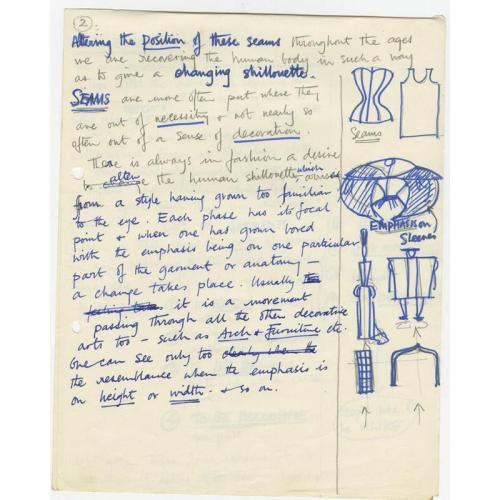 2
Altering the position of these seams throughout the ages
we are recovering the human body in such a way
as to give a changing shillouette.
SEAMS are more often put where they
are out of necessity & not nearly so
often out of a sense of decoration.
There is always in fashion a desire
to alter the human shillouette, which arises
from a style having grown too familiar
to the eye. Each phase has its focal
point & when one has grown bored
with the emphasis being on one particular
part of the garment or anatomy –
a change takes place. Usually
it is a movement
passing through all the other decorative
arts too – such as Arch & Furniture etc.
One can see only too clearly when the
the resemblance when the emphasis is
on height or width. & so on.
Seams
EMPHASIS on
Sleeves
TO BE